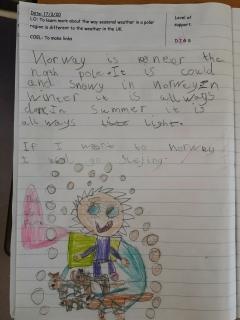 Date: 17/3/20
LO: To learn more about the way seasonal weather in a polar
region is different to the weather in the UK.
COEL: To make links
Level of
support:
Norway is near the
noth pole. It is could
and snowy in Norway In
winter it is allways
darck in summer it is
allways light.
If I to Norway
I go